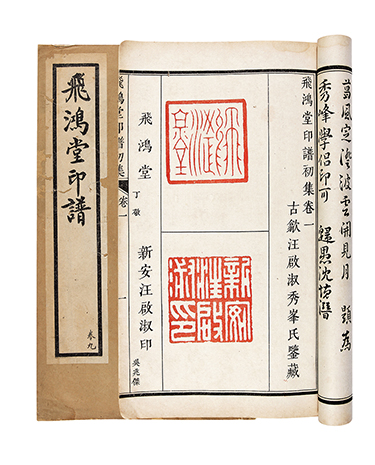 飛鴻堂印譜
卷九
風定澄波雲開見月 題為
秀峰學侶印可 歸愚沈德潛
飛鴻堂印譜初集卷一
古歙汪啟淑秀峯氏鑒藏
飛鴻堂
新安汪啟淑印
飛鴻堂 丁敬
新安汪啟淑印 吳兆傑
飛鴻堂印譜初集 卷一 一